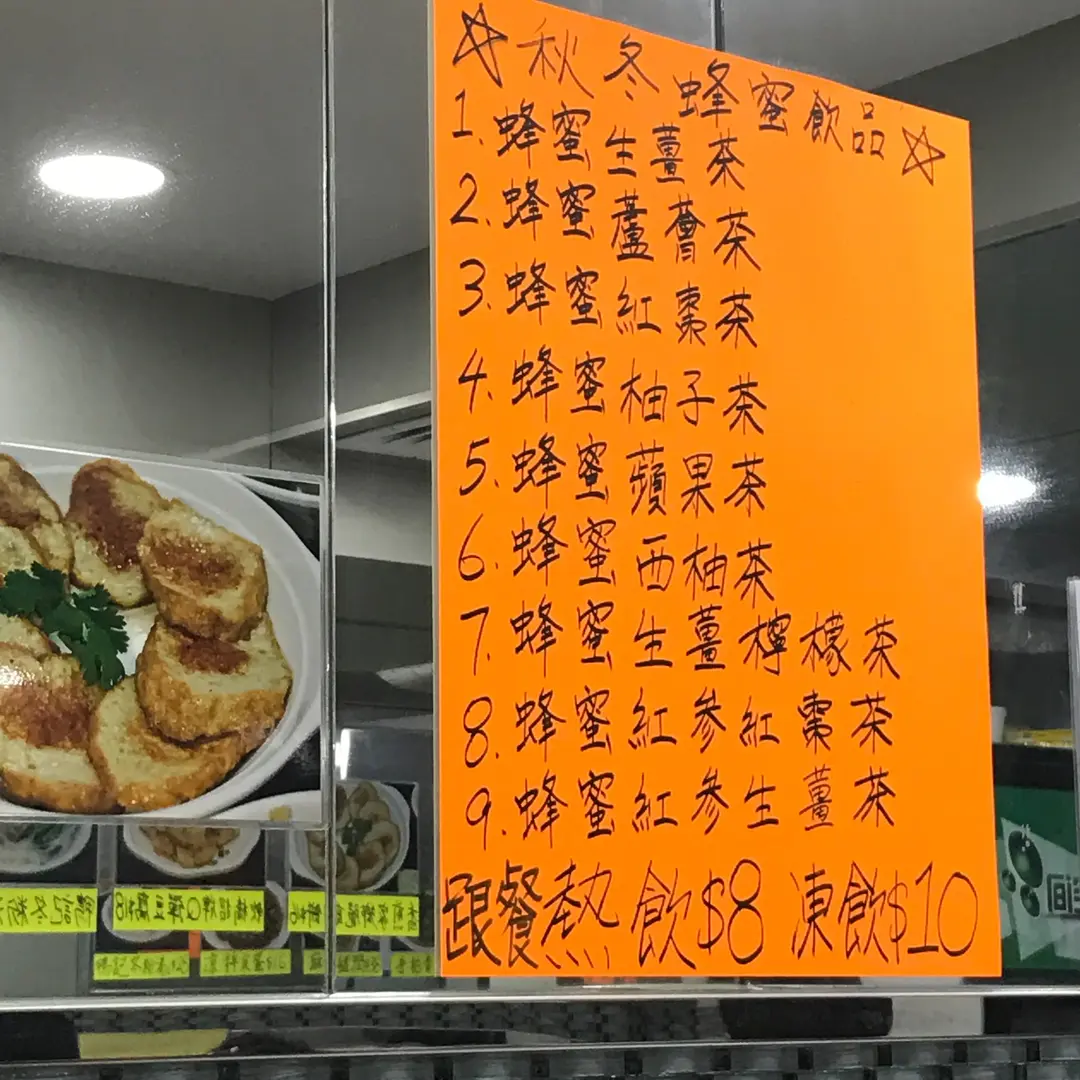 ☆秋冬蜂蜜飲品☆
1. 蜂蜜生薑茶
2. 蜂蜜蘆薈茶
3. 蜂蜜紅棗茶
4. 蜂蜜柚子茶
5. 蜂蜜蘋果茶
6. 蜂蜜西柚茶
7. 蜂蜜生薑檸檬茶
8. 蜂蜜紅參紅棗茶
9. 蜂蜜紅參生薑茶
跟餐熱飲$8 凍飲$10